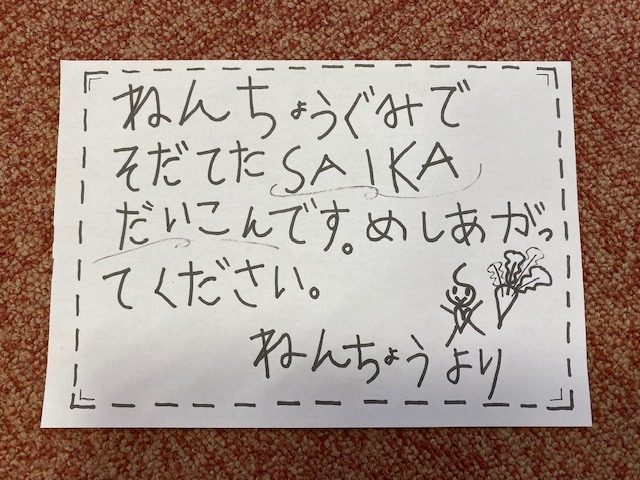 ねんちょうぐみで
そだてた SAIKA
だいこんです。めしあがっ
てください。
ねんちょうより